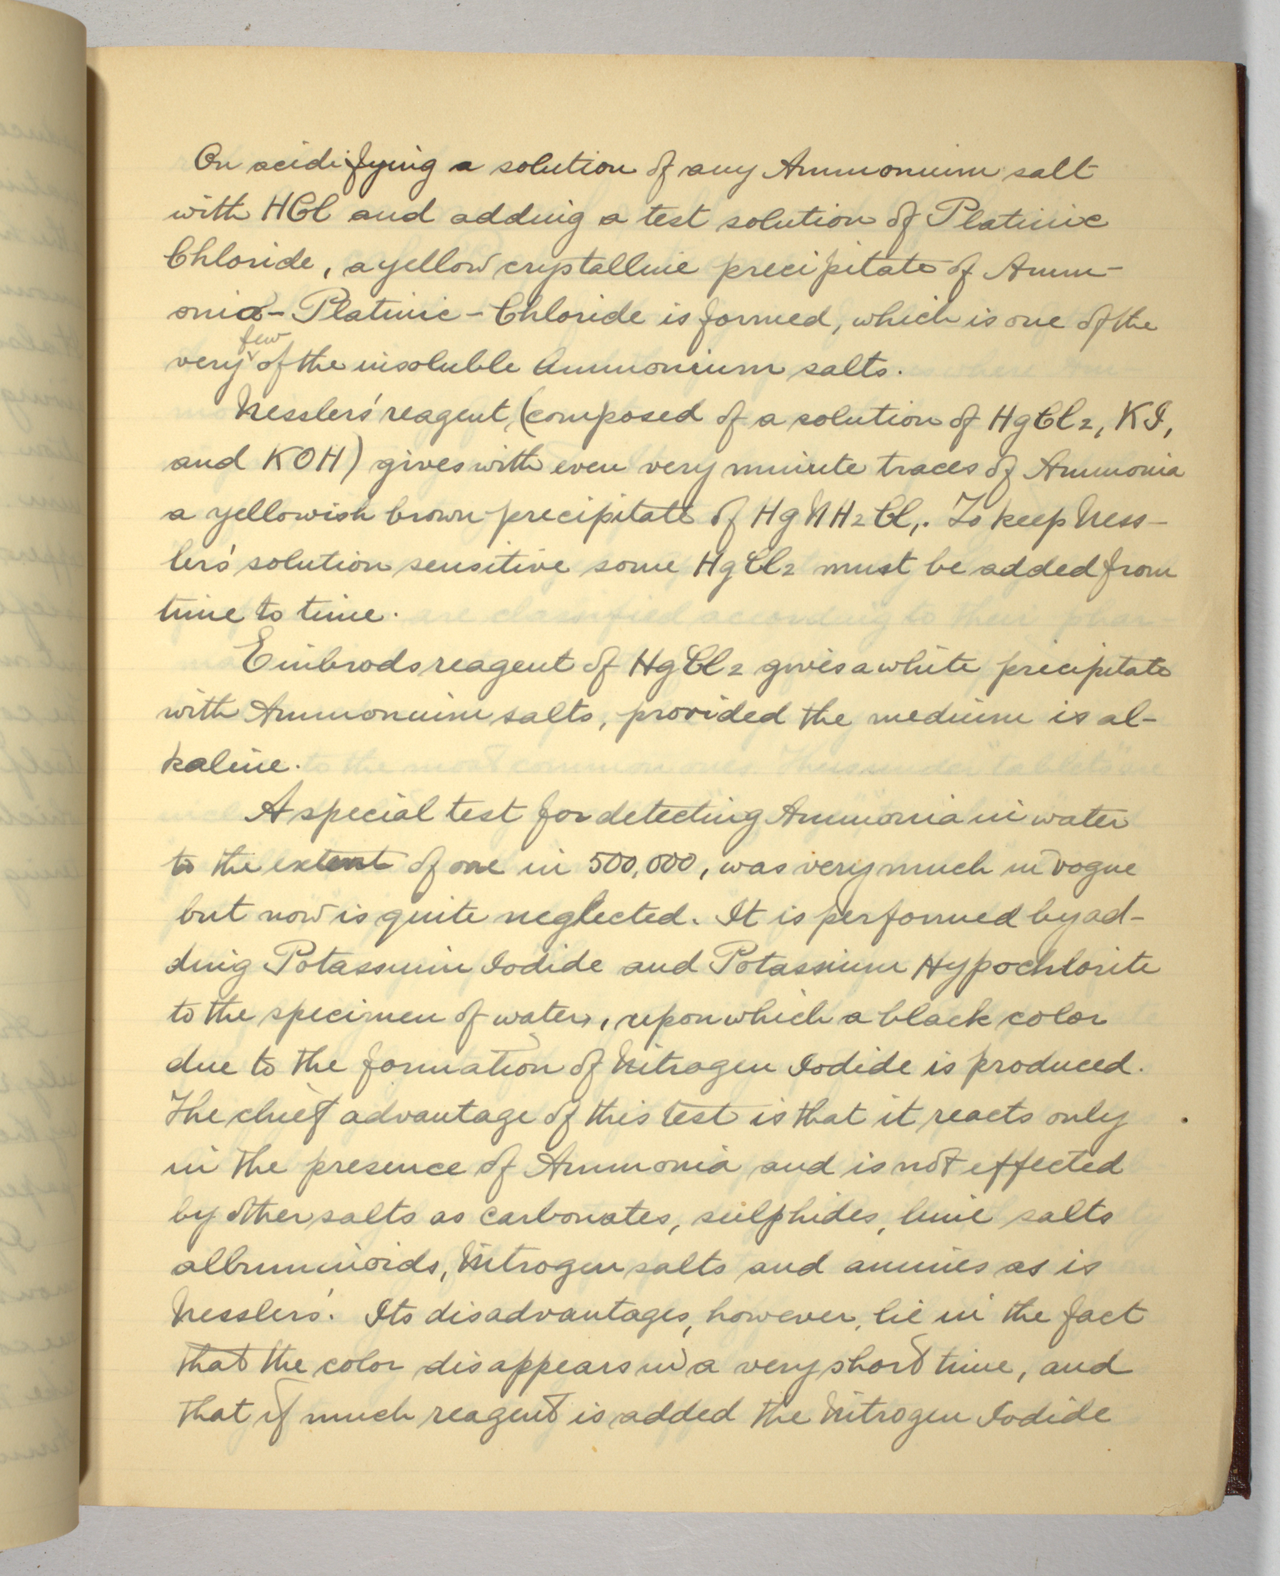 On acidifying a solution of any Ammonium salt
with HCl and adding a test solution of Platinic
Chloride, a yellow crystalline precipitate of Amm-
onio-Platinic-Chloride is formed, which is one of the
few
very of the insoluble Ammonium salts.
Nesslers' reagent, (composed of a solution of HgCl2, KI,
and KOH) gives with even very minute traces of Ammonia
a yellowish brown precipitate of HgNH2Cl,. To keep Ness-
lers' solution sensitive some HgCl2 must be added from
time to time.
Einbrods reagent of HgCl2 gives a white precipitate
with Ammonium salts, provided the medium is al-
kaline.
A special test for detecting Ammonia in water
to the extent of one in 500,000, was very much in vogue
but now is quite neglected. It is performed by ad-
ding Potassium Iodide and Potassium Hypochlorite
to the specimen of water, upon which a black color
due to the formation of Nitrogen Iodide is produced.
The chief advantage of this test is that it reacts only
in the presence of Ammonia and is not effected
by other salts as carbonates, sulphides, lime salts
albuminoids, Nitrogen salts and amines as is
Nesslers'. Its disadvantages, however, lie in the fact
that the color disappears in a very short time, and
that if much reagent is added the Nitrogen Iodide